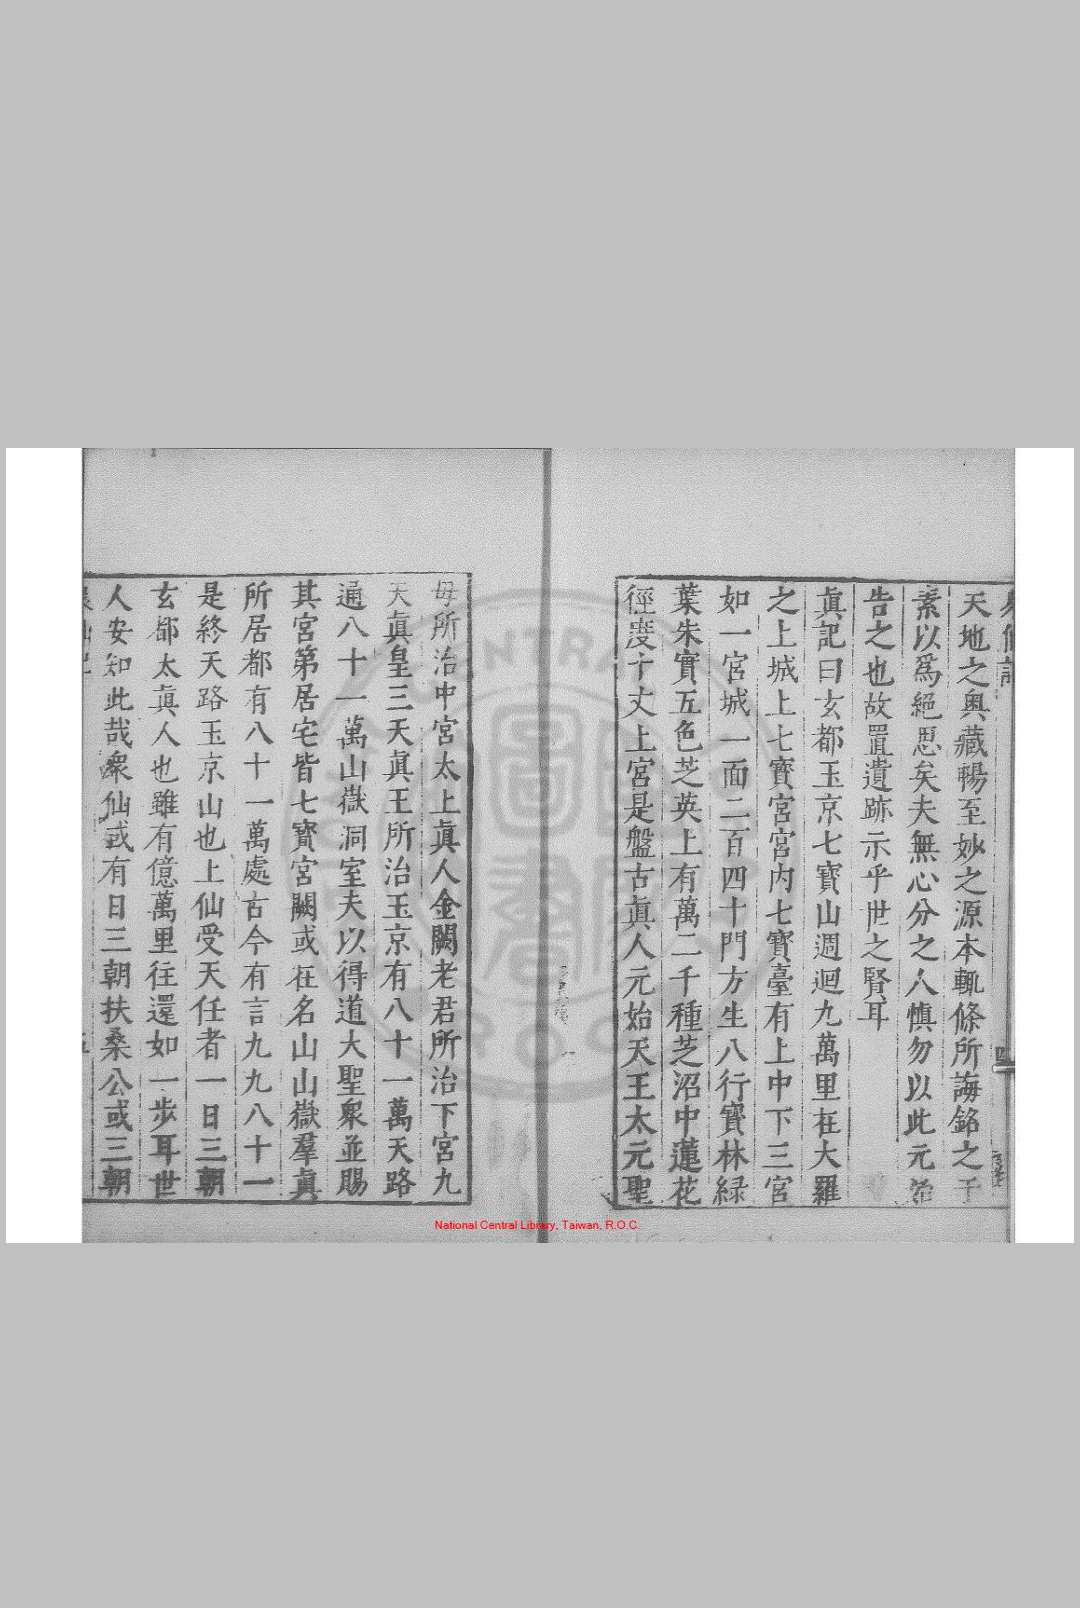 天地之奧藏暢至妙之源本輒條所誨銘之于
素以爲絕思矣夫無心分之人慎勿以此元
告之也故置遺跡示乎世之賢耳
眞記曰玄都玉京七寶山週迴九萬里在大羅
之上城上七寶宮宮內七寶臺有上中下三宮
如一宮城一面二百四十門方生八行寶林緑
葉朱實五色芝英上有萬二千種芝沼中蓮花
徑度十丈上宮是盤古眞人元始天王太元聖
母所治中宮太上眞人金闕老君所治下宮九
天眞皇三天眞王所治玉京有八十一萬天路
通八十一萬山嶽洞室夫以得道大聖衆並賜
其宮第居宅皆七寳宮闕或在名山山嶽羣眞
所居都有八十一萬處古今有言九九八十一
是終天路玉京山也上仙受天任者一日三朝
玄都太眞人也雖有億萬里往還如一步耳世
人安知此哉衆仙或有日三朝扶桑公或三朝
National Central Library, Taiwan, R.O.C.